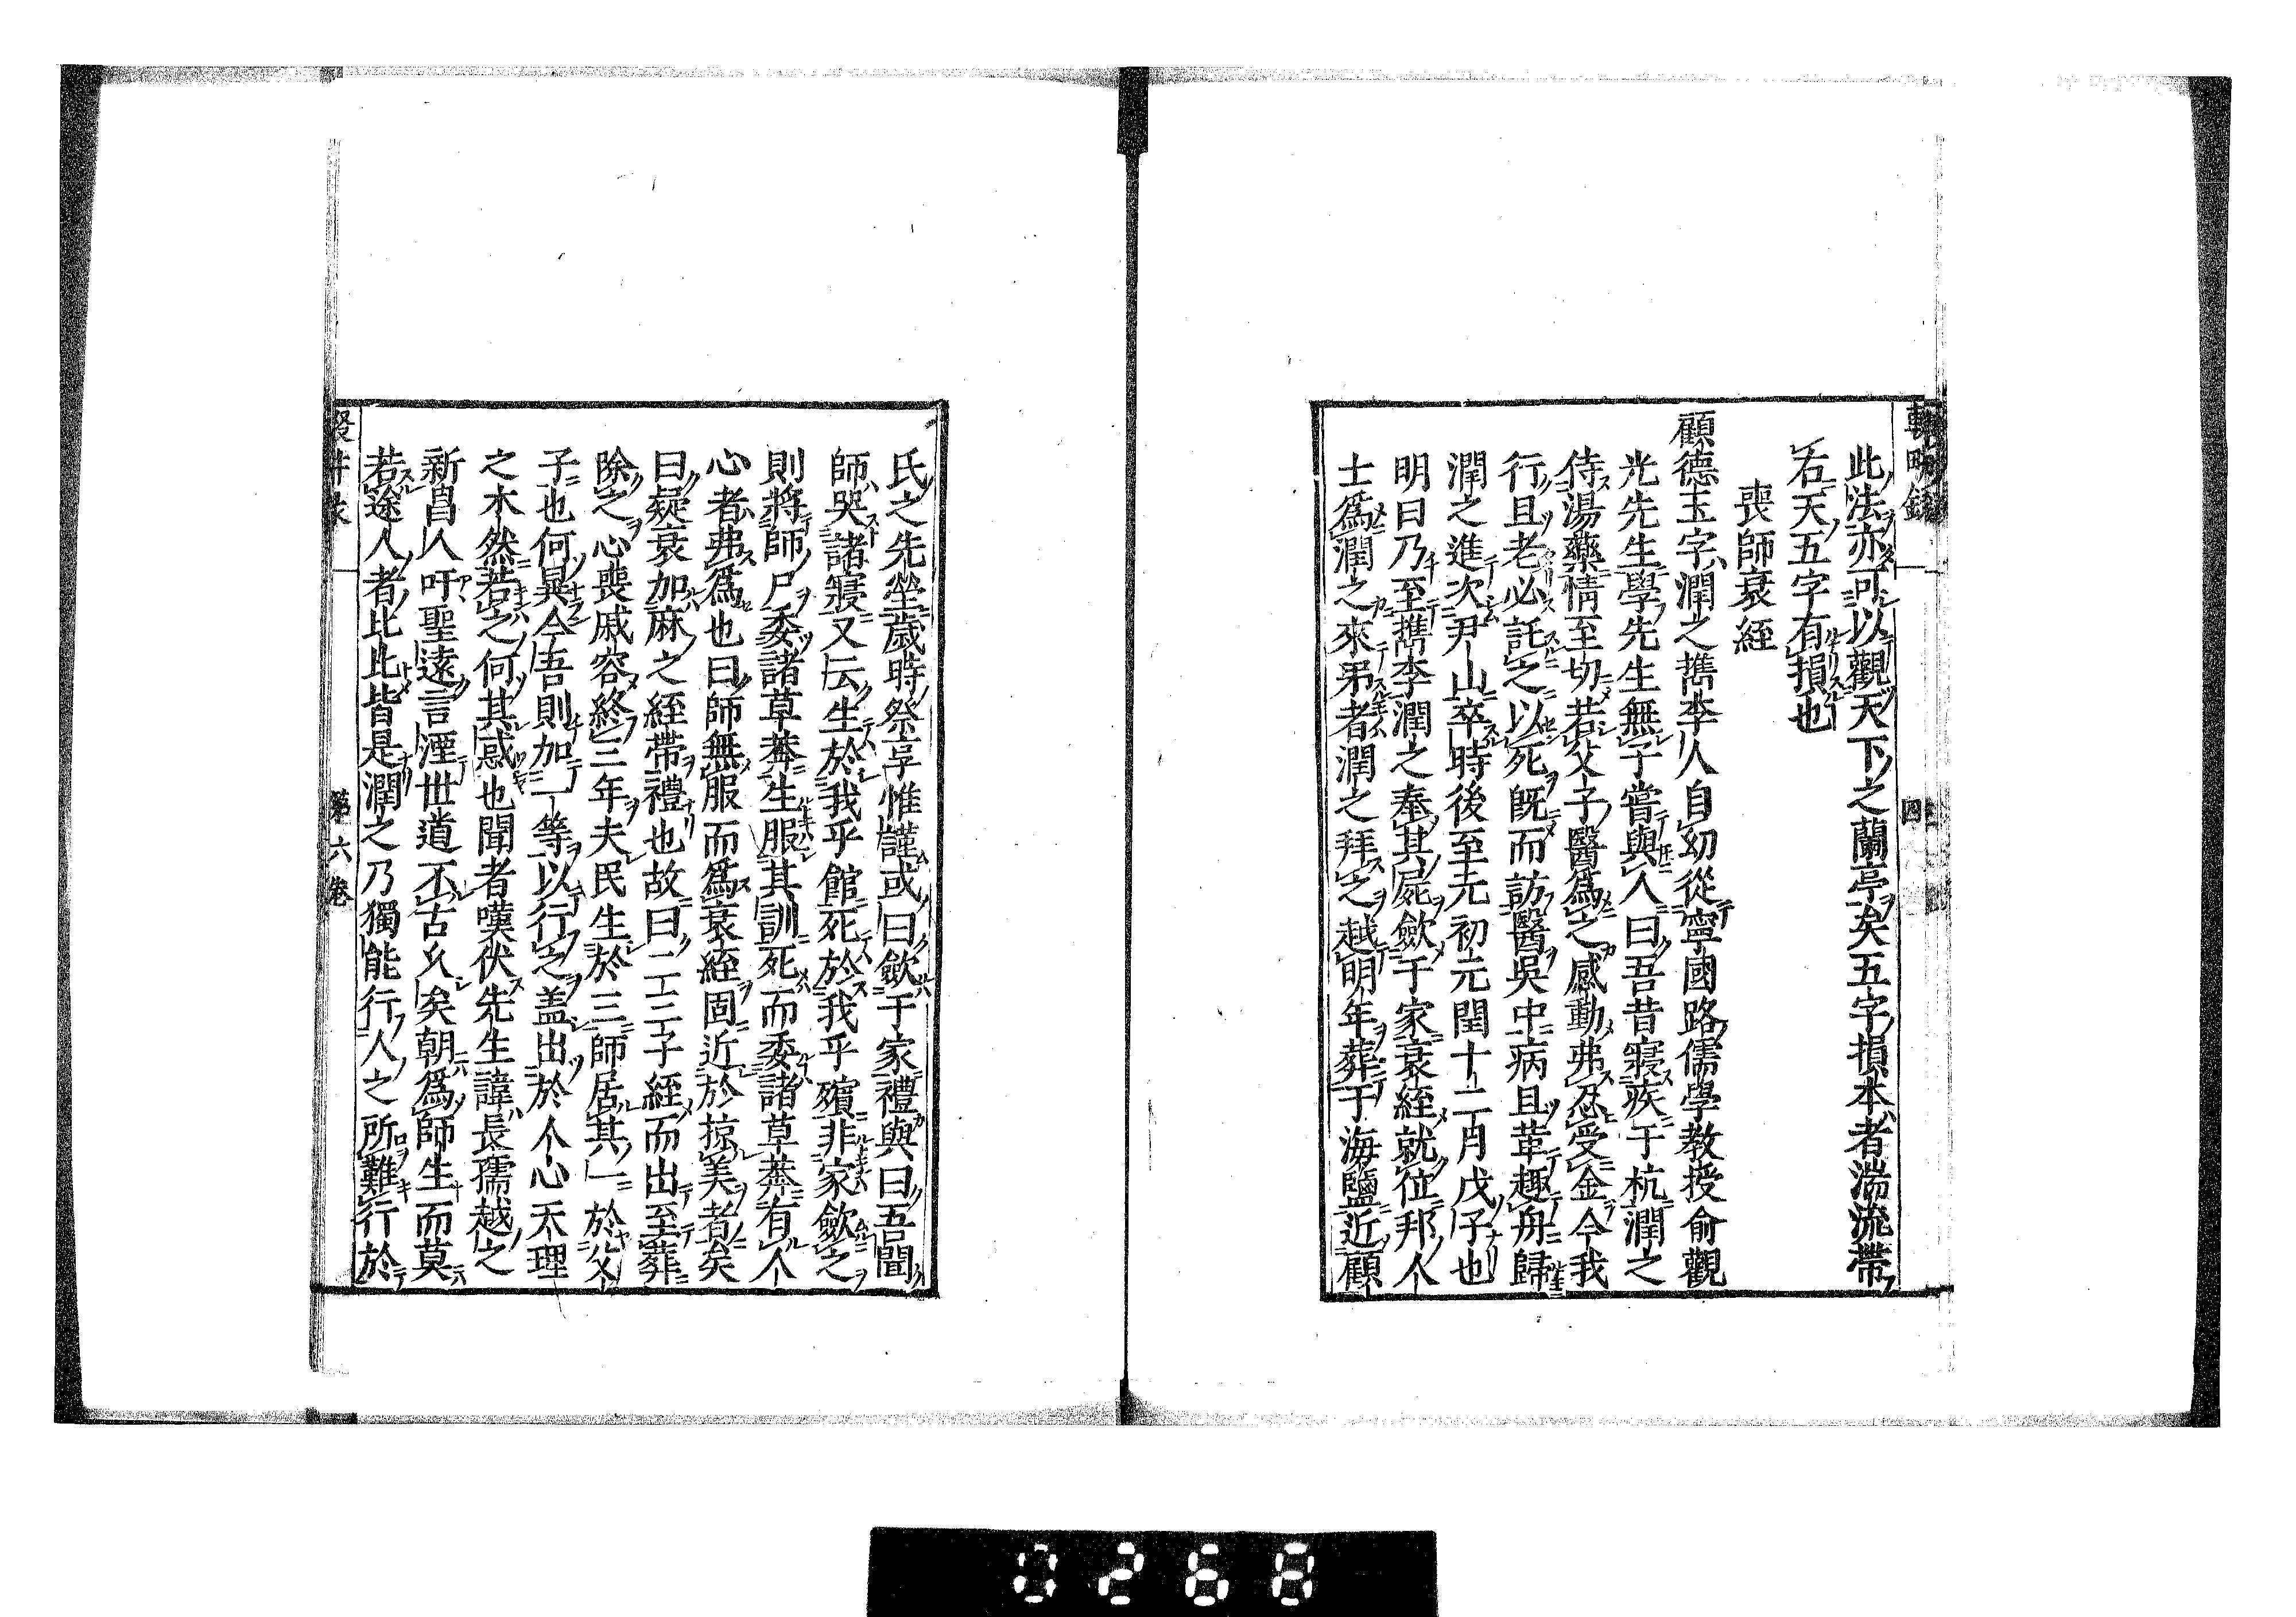 此法亦可以觀天下之蘭亭矣五字損本者湍流帶
右天五字有損也
喪師衰絰
顧德玉字潤之檇李人自幼從寧國路儒學教授俞觀
光先生學先生無子嘗與人曰吾昔寢疾于杭潤之
侍湯藥情至切若父子醫爲之感動弗忍受金今我
行且老必託之以死旣而訪醫吳中病且革趣舟歸
潤之進次尹山卒時後至元初元閏十二月戊子也
明日乃至檇李潤之奉其屍斂于家衰絰就位邦人
士爲潤之來弔者潤之拜之越明年葬于海鹽近顧
氏之先塋歲時祭享惟謹或曰斂于家禮與曰吾聞
師哭諸寢又云生於我乎館死於我乎殯非家斂之
則將師尸委諸草莽生服其訓死而委諸草莽有人
心者弗爲也曰師無服而爲衰絰固近於掠美者矣
曰疑衰加麻之絰帶禮也故曰二三子絰而出至葬
除之心喪戚容終三年夫民生於三師居其一於父
子也何異今吾則加一等以行之盖出於人心天理
之本然若之何其惑也聞者嘆伏先生諱長孺越之
新昌人吁聖遠言湮世道不古久矣朝爲師生而莫
若途人者比比皆是潤之乃獨能行人之所難行於
第六卷
四
0268